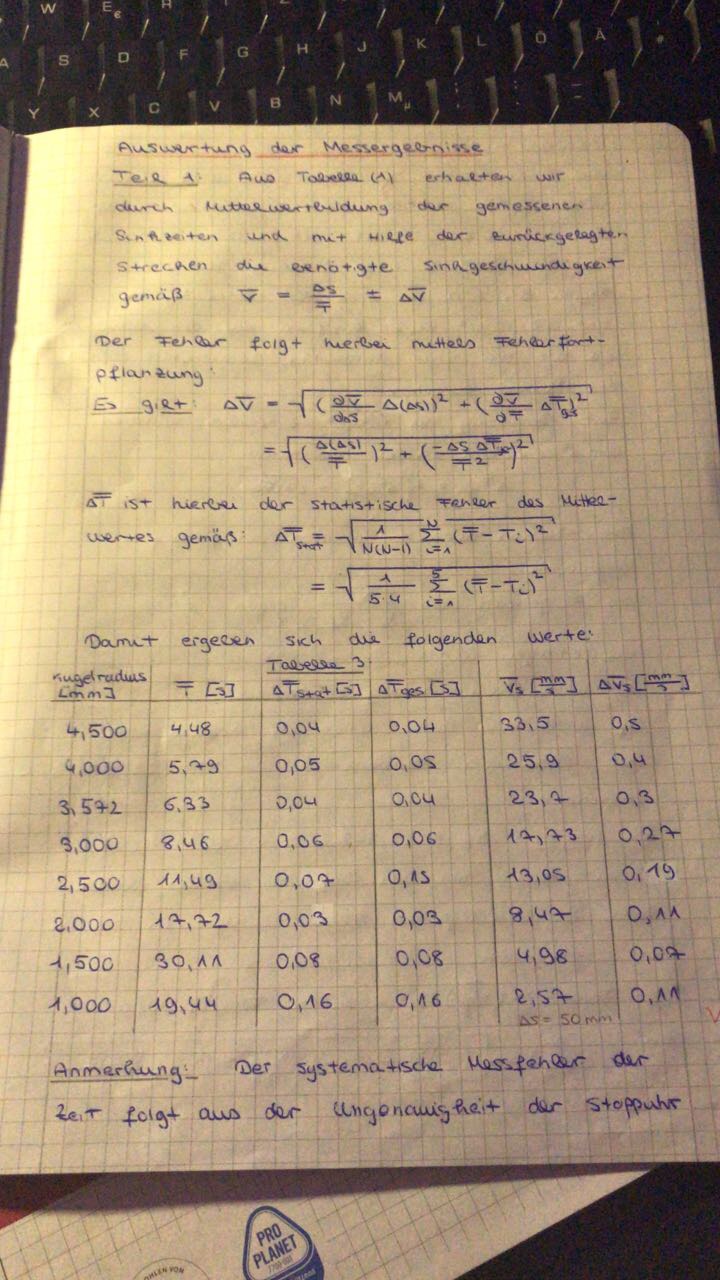 W E €
A S D F G H J K L Ö Ä
Y X C V B N M µ
Auswertung der Messergebnisse
Teil 1: Aus Tabelle (1) erhalten wir
durch Mittelwertbildung der gemessenen
Sinkzeiten und mit Hilfe der zurückgelegten
Strecken die benötigte Sinkgeschwindigkeit
gemäß V̅ = ΔS/T̅ ± ΔV̅
Der Fehler folgt hierbei mittels Fehlerfort-
pflanzung:
Es gilt: ΔV̅ = √((∂V̅/∂ΔS Δ(ΔS))² + (∂V̅/∂T̅ ΔT̅ges)²)
= √((Δ(ΔS)/T̅)² + (-ΔS ΔT̅ges/T̅²)²)
ΔT̅ ist hierbei der statistische Fehler des Mittel-
wertes gemäß: ΔT̅stat = √(1/N(N-1) Σ_{i=1}^{N} (T̅-Ti)²)
= √(1/5·4 Σ_{i=1}^{5} (T̅-Ti)²)
Damit ergeben sich die folgenden Werte:
Tabelle 3
Kugelradius [mm] T̅ [s] ΔT̅stat [s] ΔT̅ges [s] V̅s [mm/s] ΔV̅s [mm/s]
4,500 4,48 0,04 0,04 33,5 0,5
4,000 5,79 0,05 0,05 25,9 0,4
3,572 6,33 0,04 0,04 23,7 0,3
3,000 8,46 0,06 0,06 17,73 0,27
2,500 11,49 0,07 0,15 13,05 0,19
2,000 17,72 0,03 0,03 8,47 0,11
1,500 30,11 0,08 0,08 4,98 0,07
1,000 19,44 0,16 0,16 2,57 0,11
ΔS = 50 mm
Anmerkung: Der systematische Messfehler der
Zeit folgt aus der Ungenauigkeit der Stoppuhr
PRO
PLANET